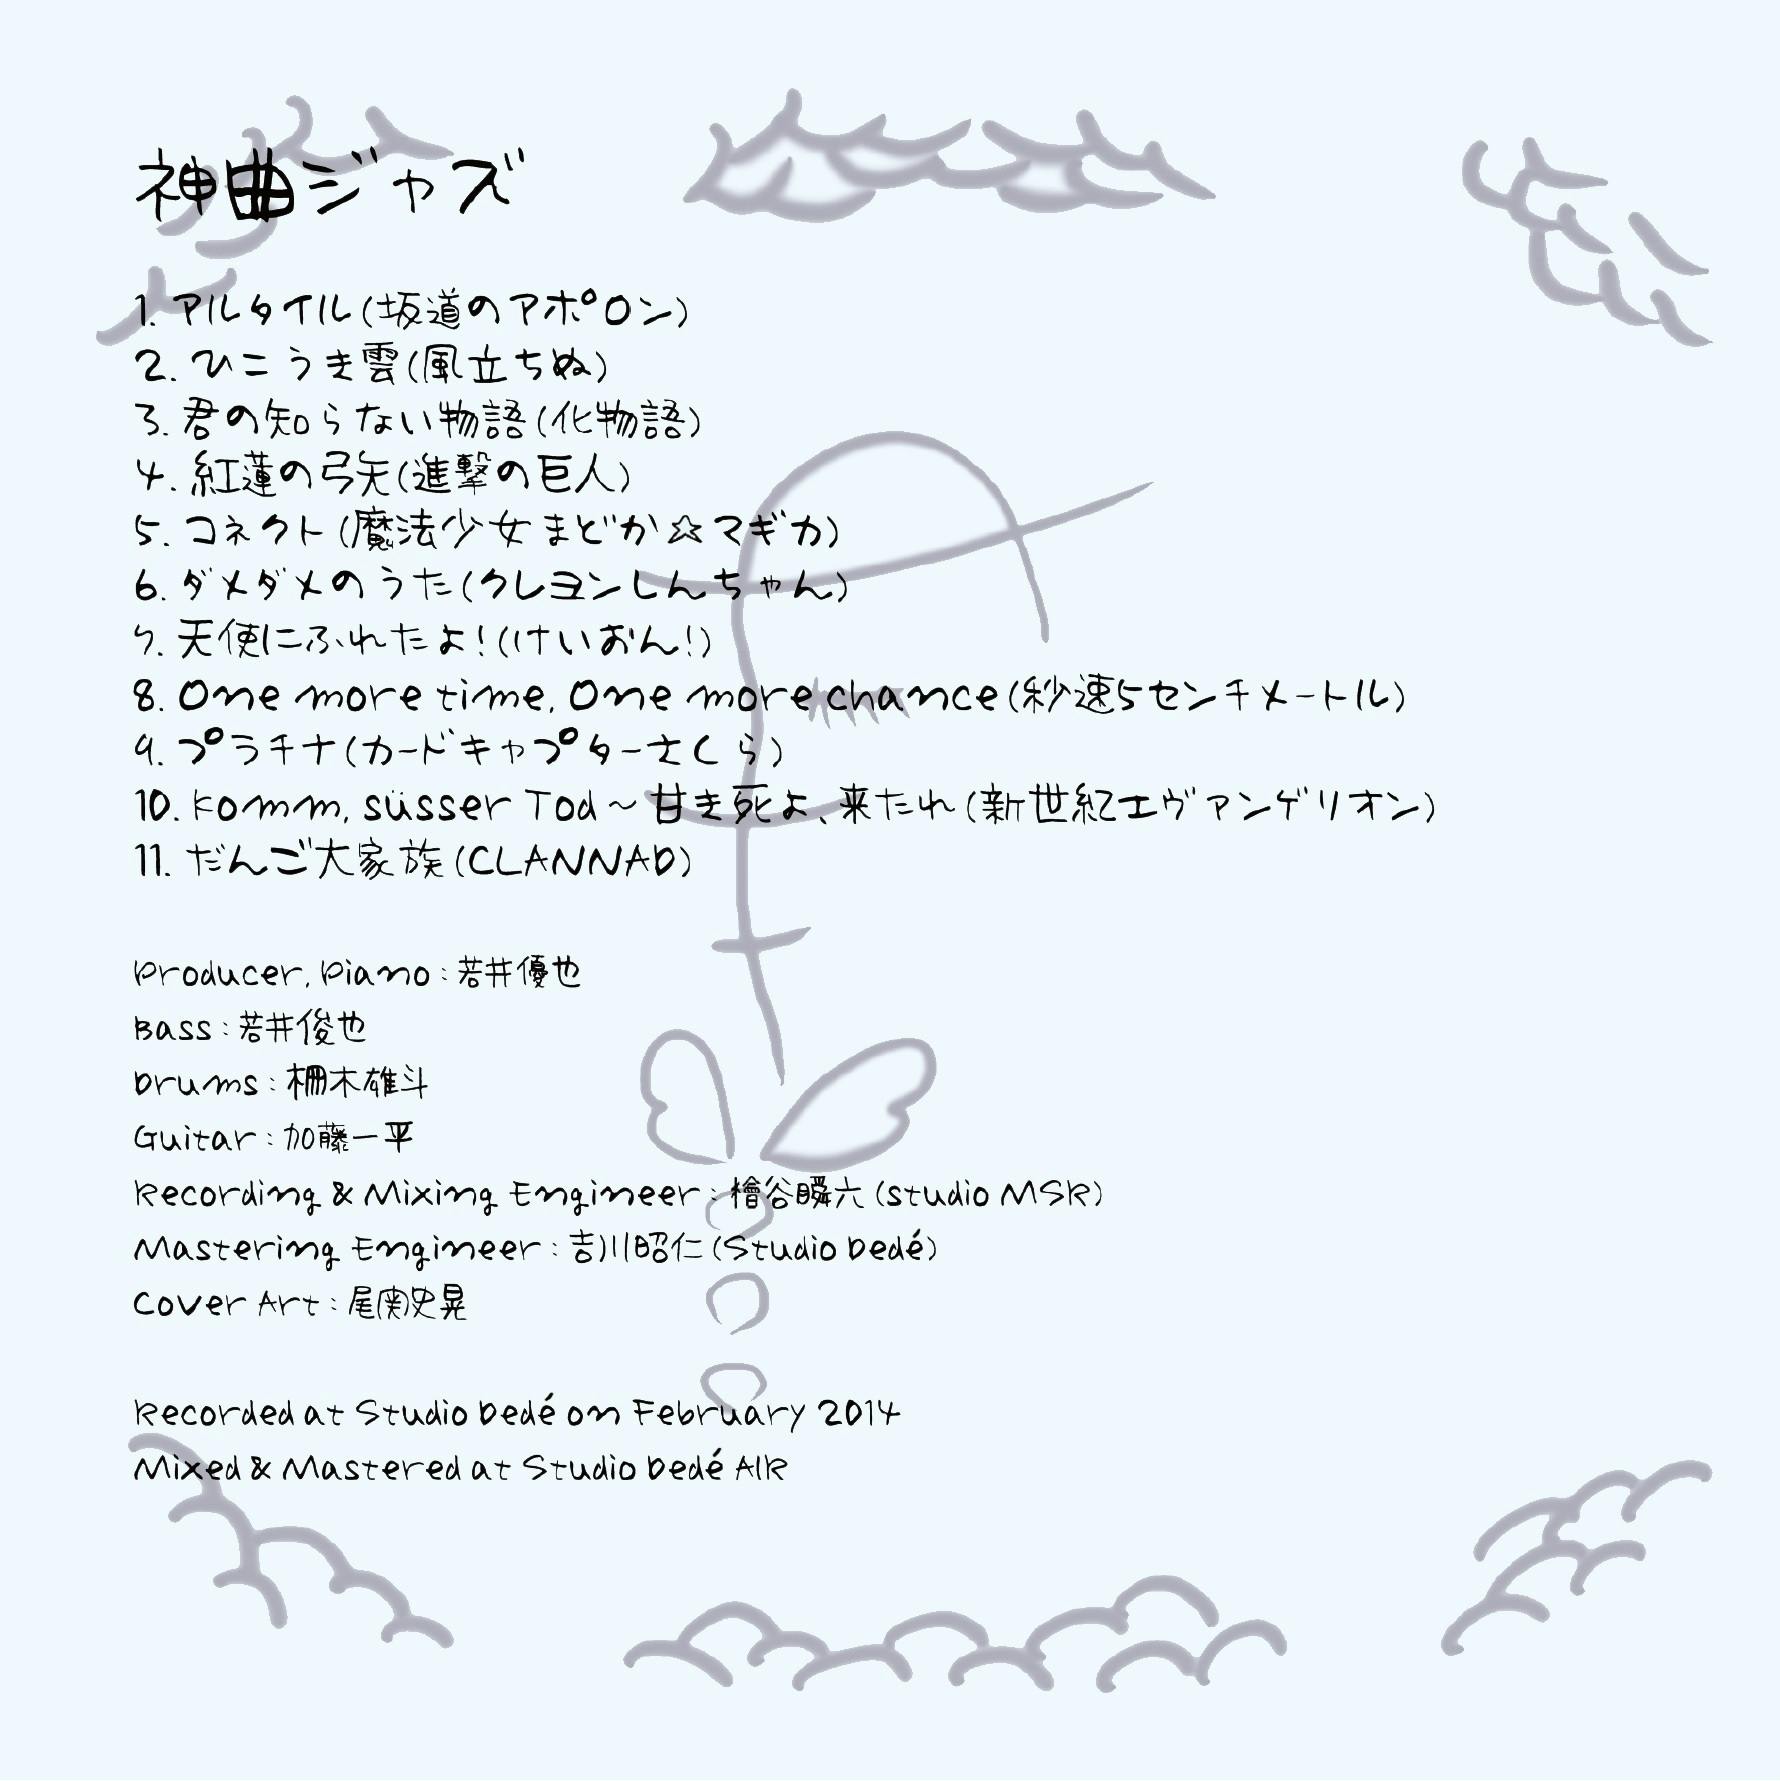 神曲ジャズ
1. アルタイル(坂道のアポロン)
2. ひこうき雲(風立ちぬ)
3. 君の知らない物語(化物語)
4. 紅蓮の弓矢(進撃の巨人)
5. コネクト(魔法少女まどか☆マギカ)
6. ダメダメのうた(クレヨンしんちゃん)
7. 天使にふれたよ!(けいおん!)
8. One more time, One more chance(秒速5センチメートル)
9. プラチナ(カードキャプターさくら)
10. Komm, süsser Tod～甘き死よ、来たれ(新世紀エヴァンゲリオン)
11. だんご大家族(CLANNAD)
Producer, Piano : 若井優也
Bass : 若井俊也
Drums : 柵木雄斗
Guitar : 加藤一平
Recording & Mixing Engineer : 檜谷瞬六(studio MSR)
Mastering Engineer : 吉川昭仁(Studio Dedé)
Cover Art : 尾関史晃
Recorded at Studio Dedé on February 2014
Mixed & Mastered at Studio Dedé AIR